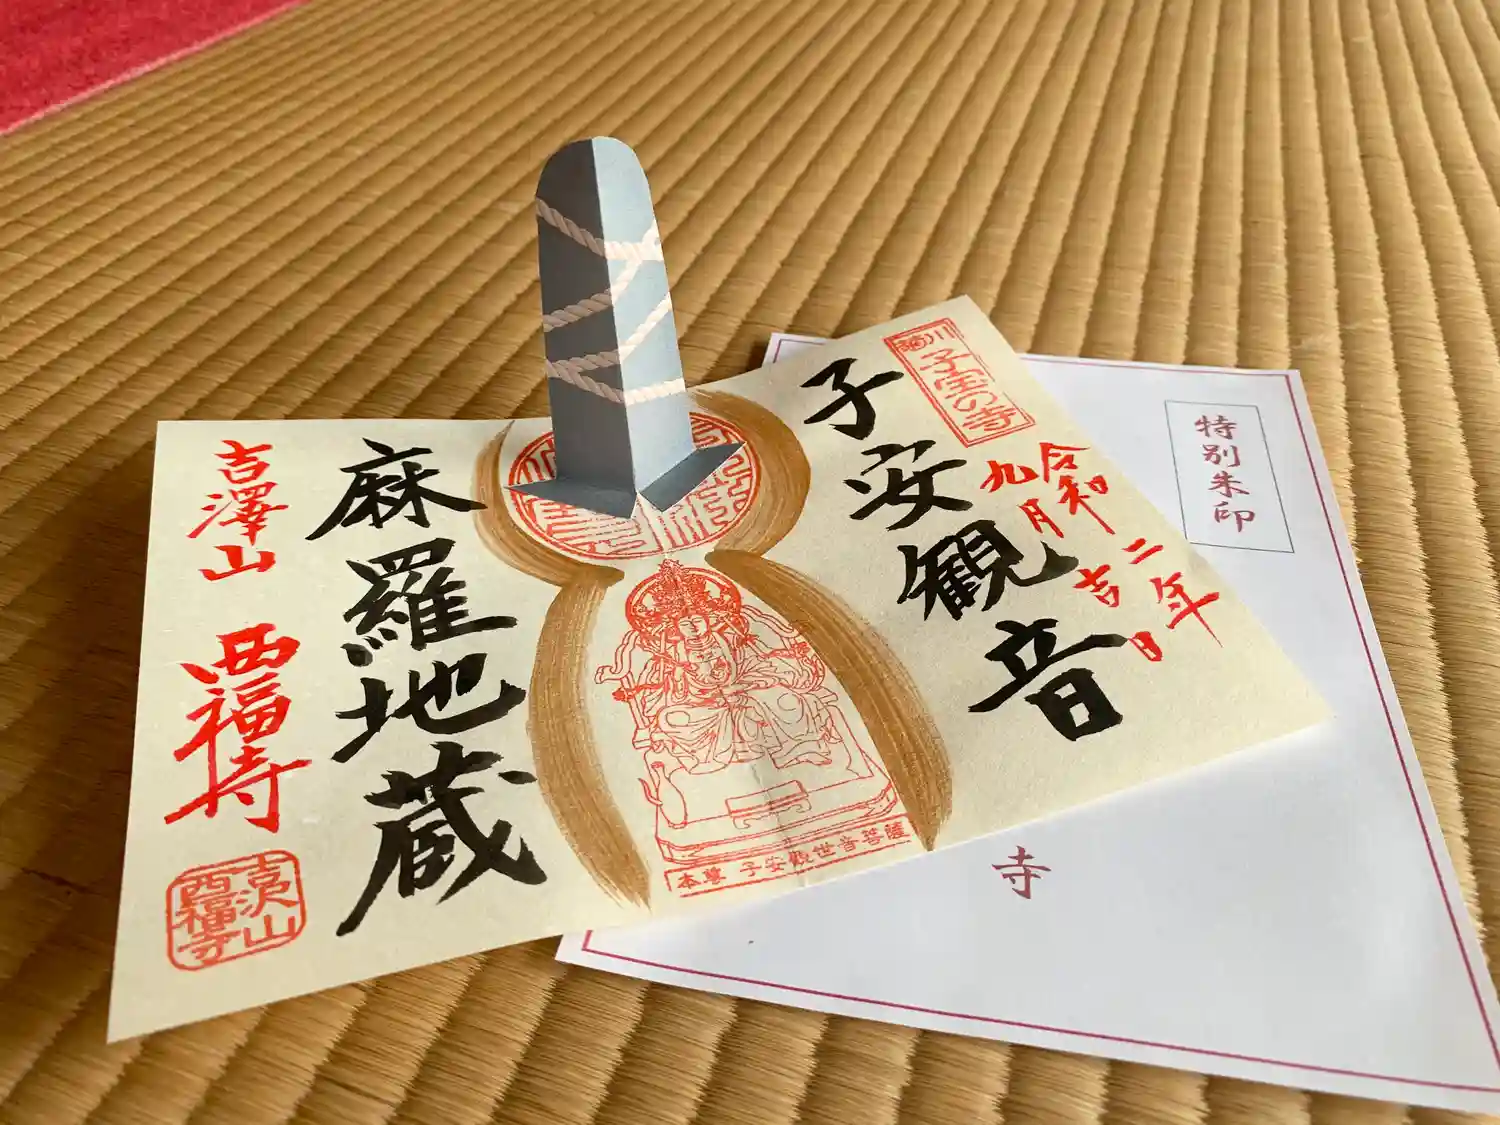 菊川
子宝の寺
令和二年
九月吉日
子安観音
本尊 子安観世音菩薩
麻羅地蔵
吉澤山 西福寺
吉沢山
西福寺
特別朱印
寺